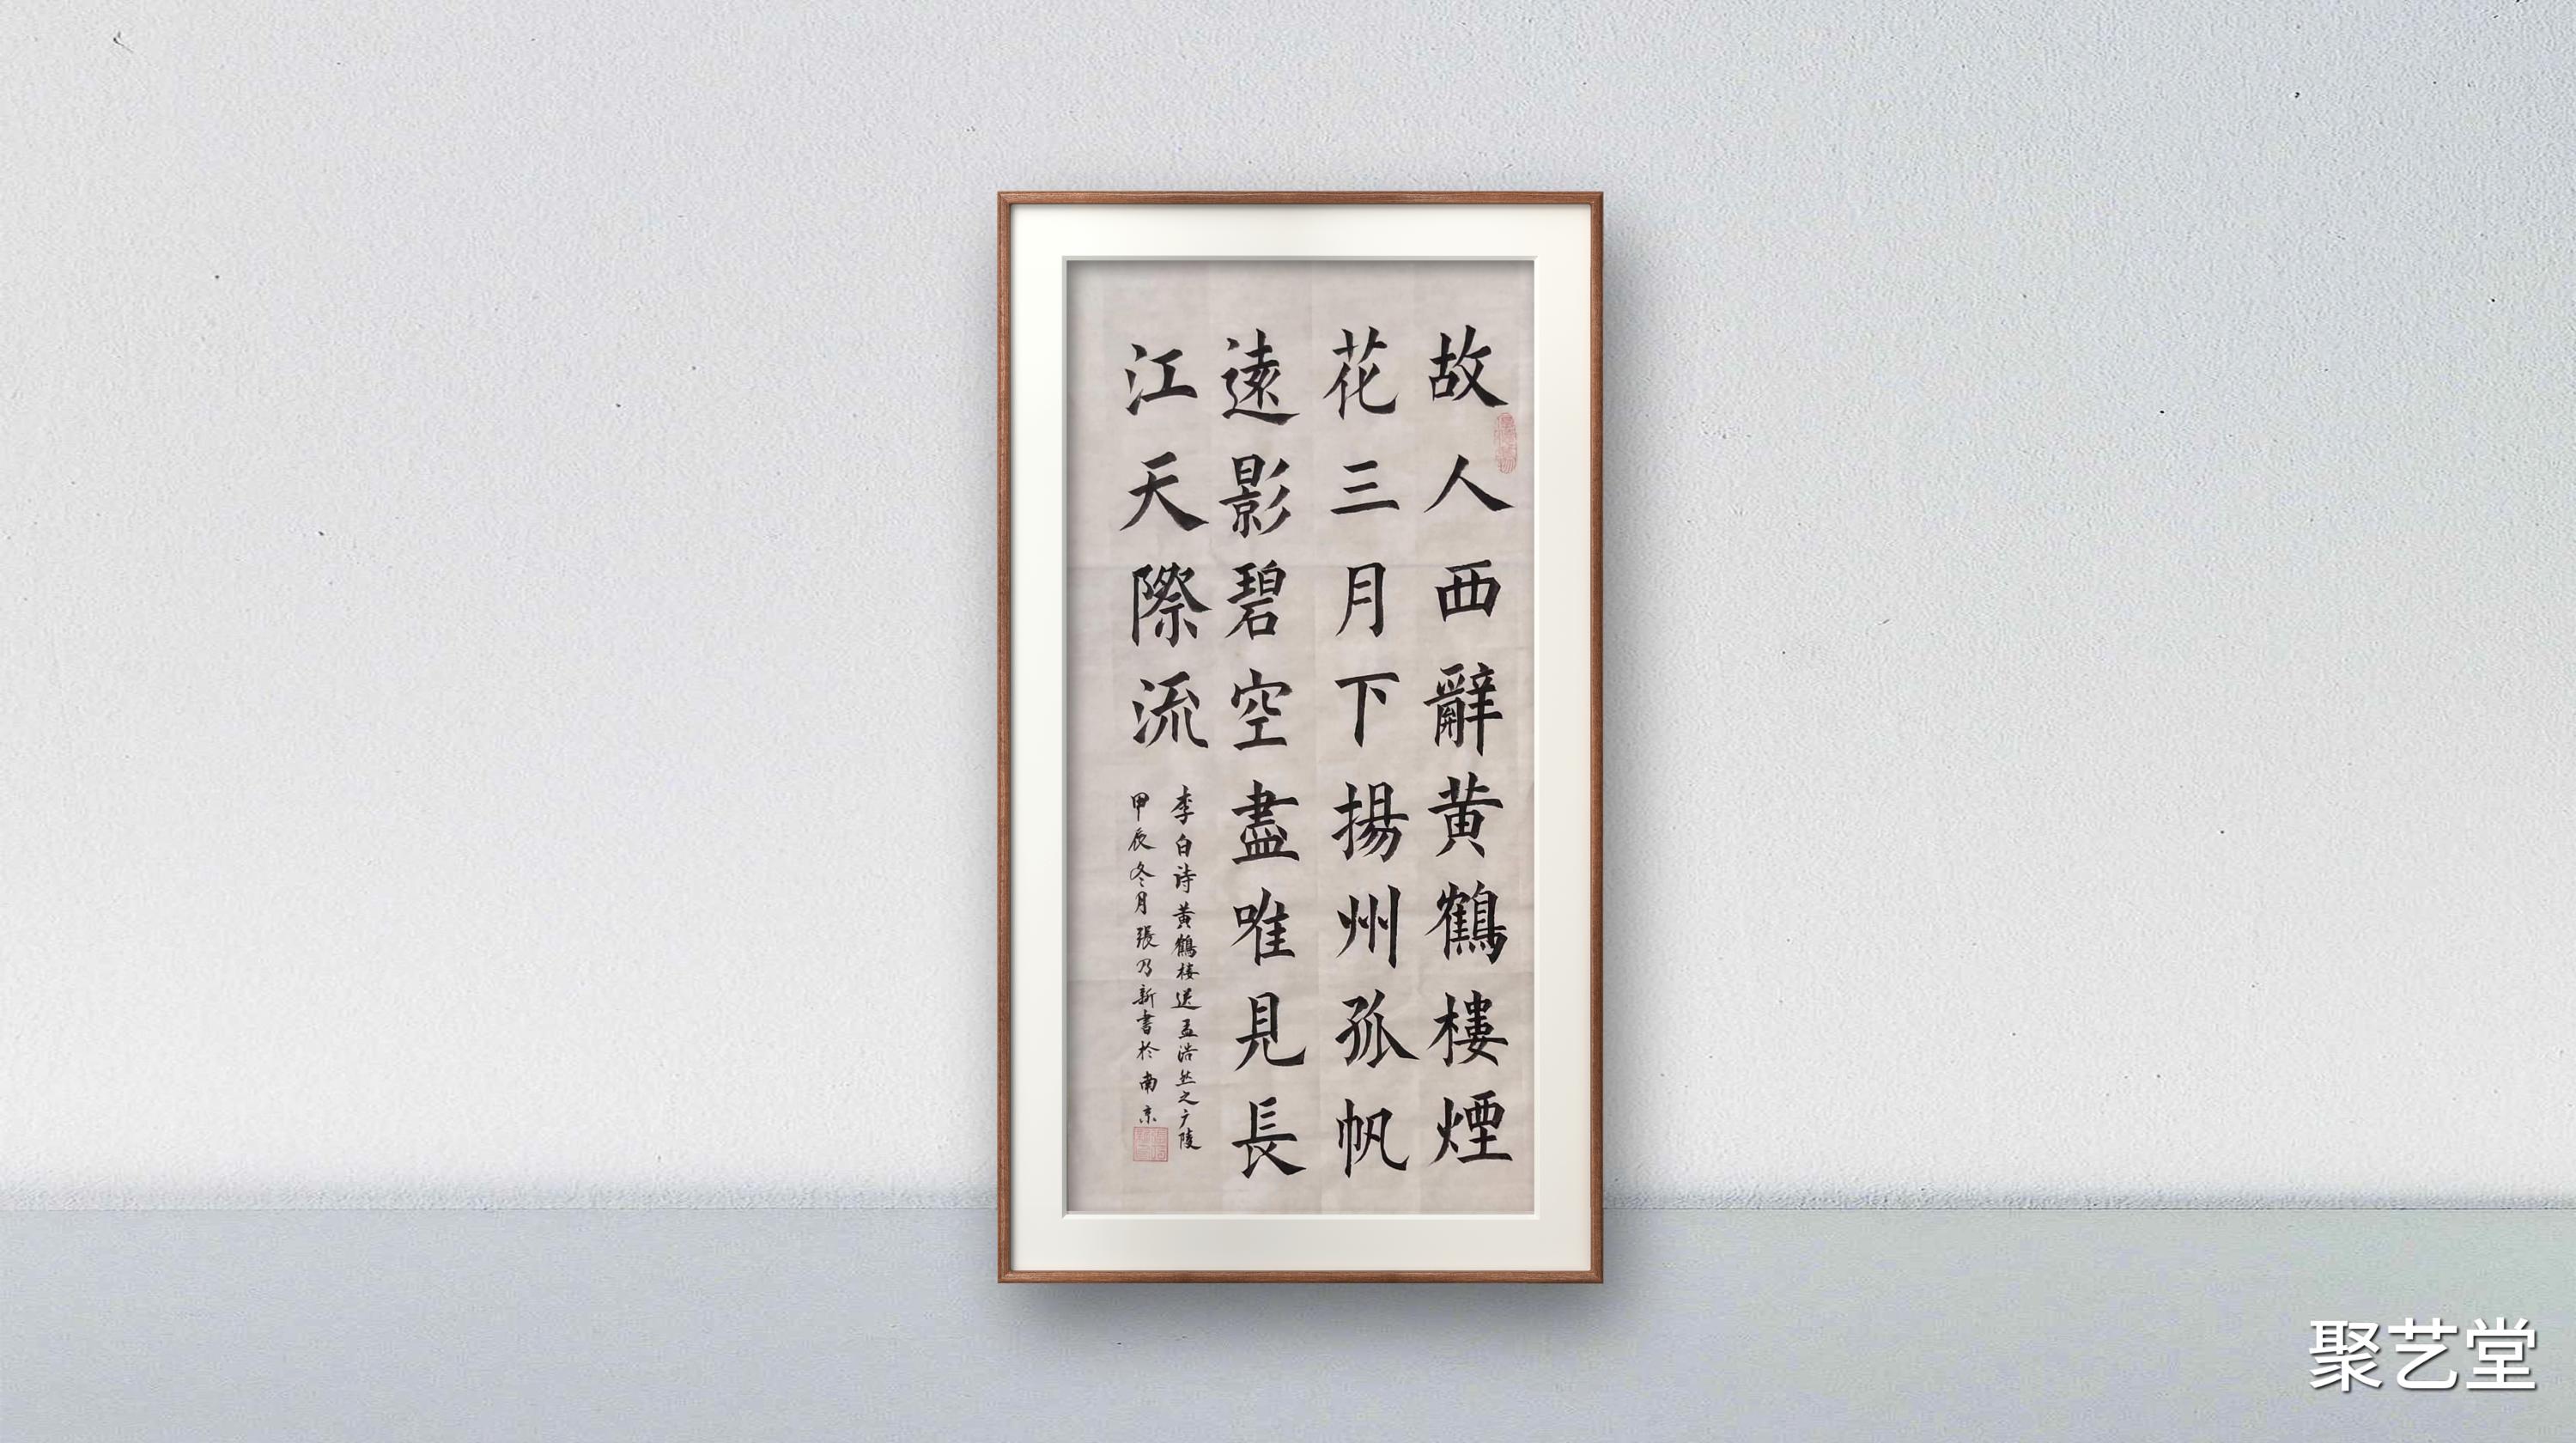 故人西辭黄鶴樓煙
花三月下揚州孤帆
遠影碧空盡唯見長
江天際流
李白诗黄鶴楼送孟浩然之广陵
甲辰冬月張乃新書於南京
聚艺堂